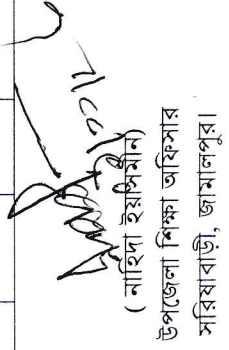 ( নাহিদা ইয়াসমীন)
উপজেলা শিক্ষা অফিসার
সরিষাবাড়ী, জামালপুর।